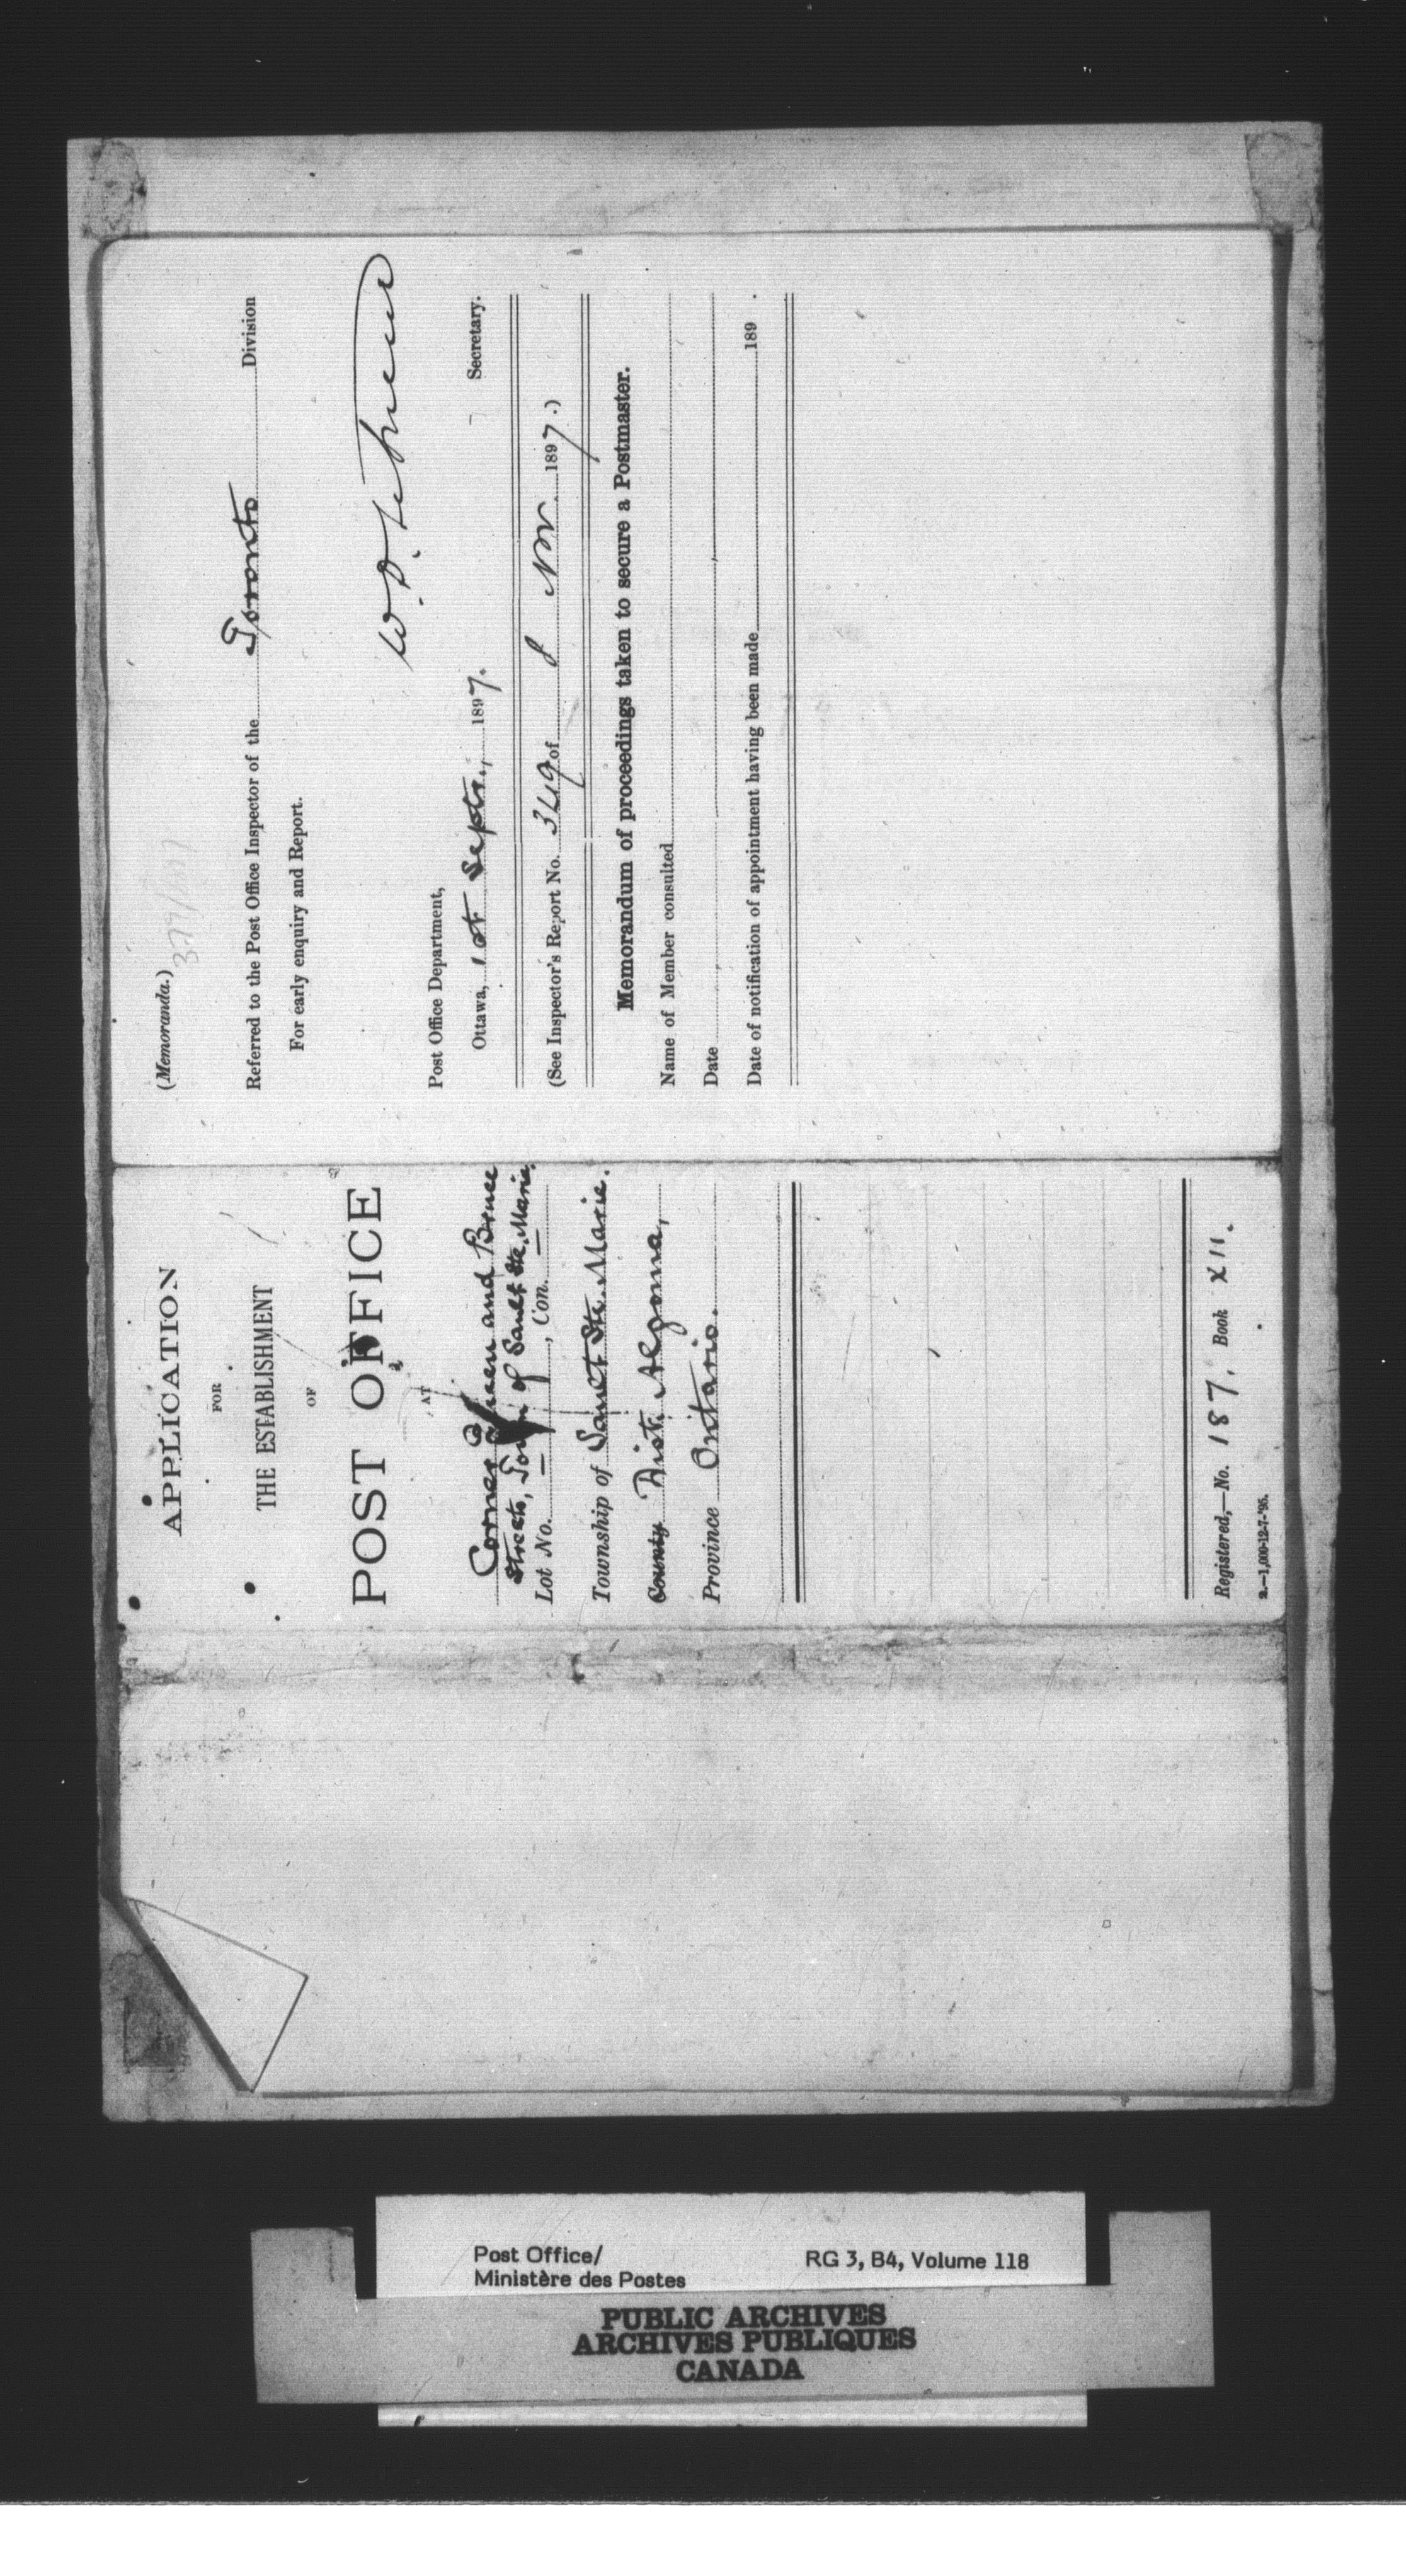 APPLICATION
FOR
THE ESTABLISHMENT
OF
POST OFFICE
AT
Corner Queen and Bruce
Streets, Town of Sault Ste. Marie.
Lot No. —, Con. —
Township of Sault Ste. Marie.
County Dist. Algoma,
Province Ontario.
Registered,—No. 187, Book XII.
2.—1,000-12-7-'95.
(Memoranda.)
Referred to the Post Office Inspector of the Toronto Division
For early enquiry and Report.
Secretary.
Post Office Department,
Ottawa, 1st Septr., 1897.
(See Inspector's Report No. 349 of 8 Nov. 1897.)
Memorandum of proceedings taken to secure a Postmaster.
Name of Member consulted
Date
Date of notification of appointment having been made 189 .
Post Office/
Ministère des Postes
RG 3, B4, Volume 118
PUBLIC ARCHIVES
ARCHIVES PUBLIQUES
CANADA